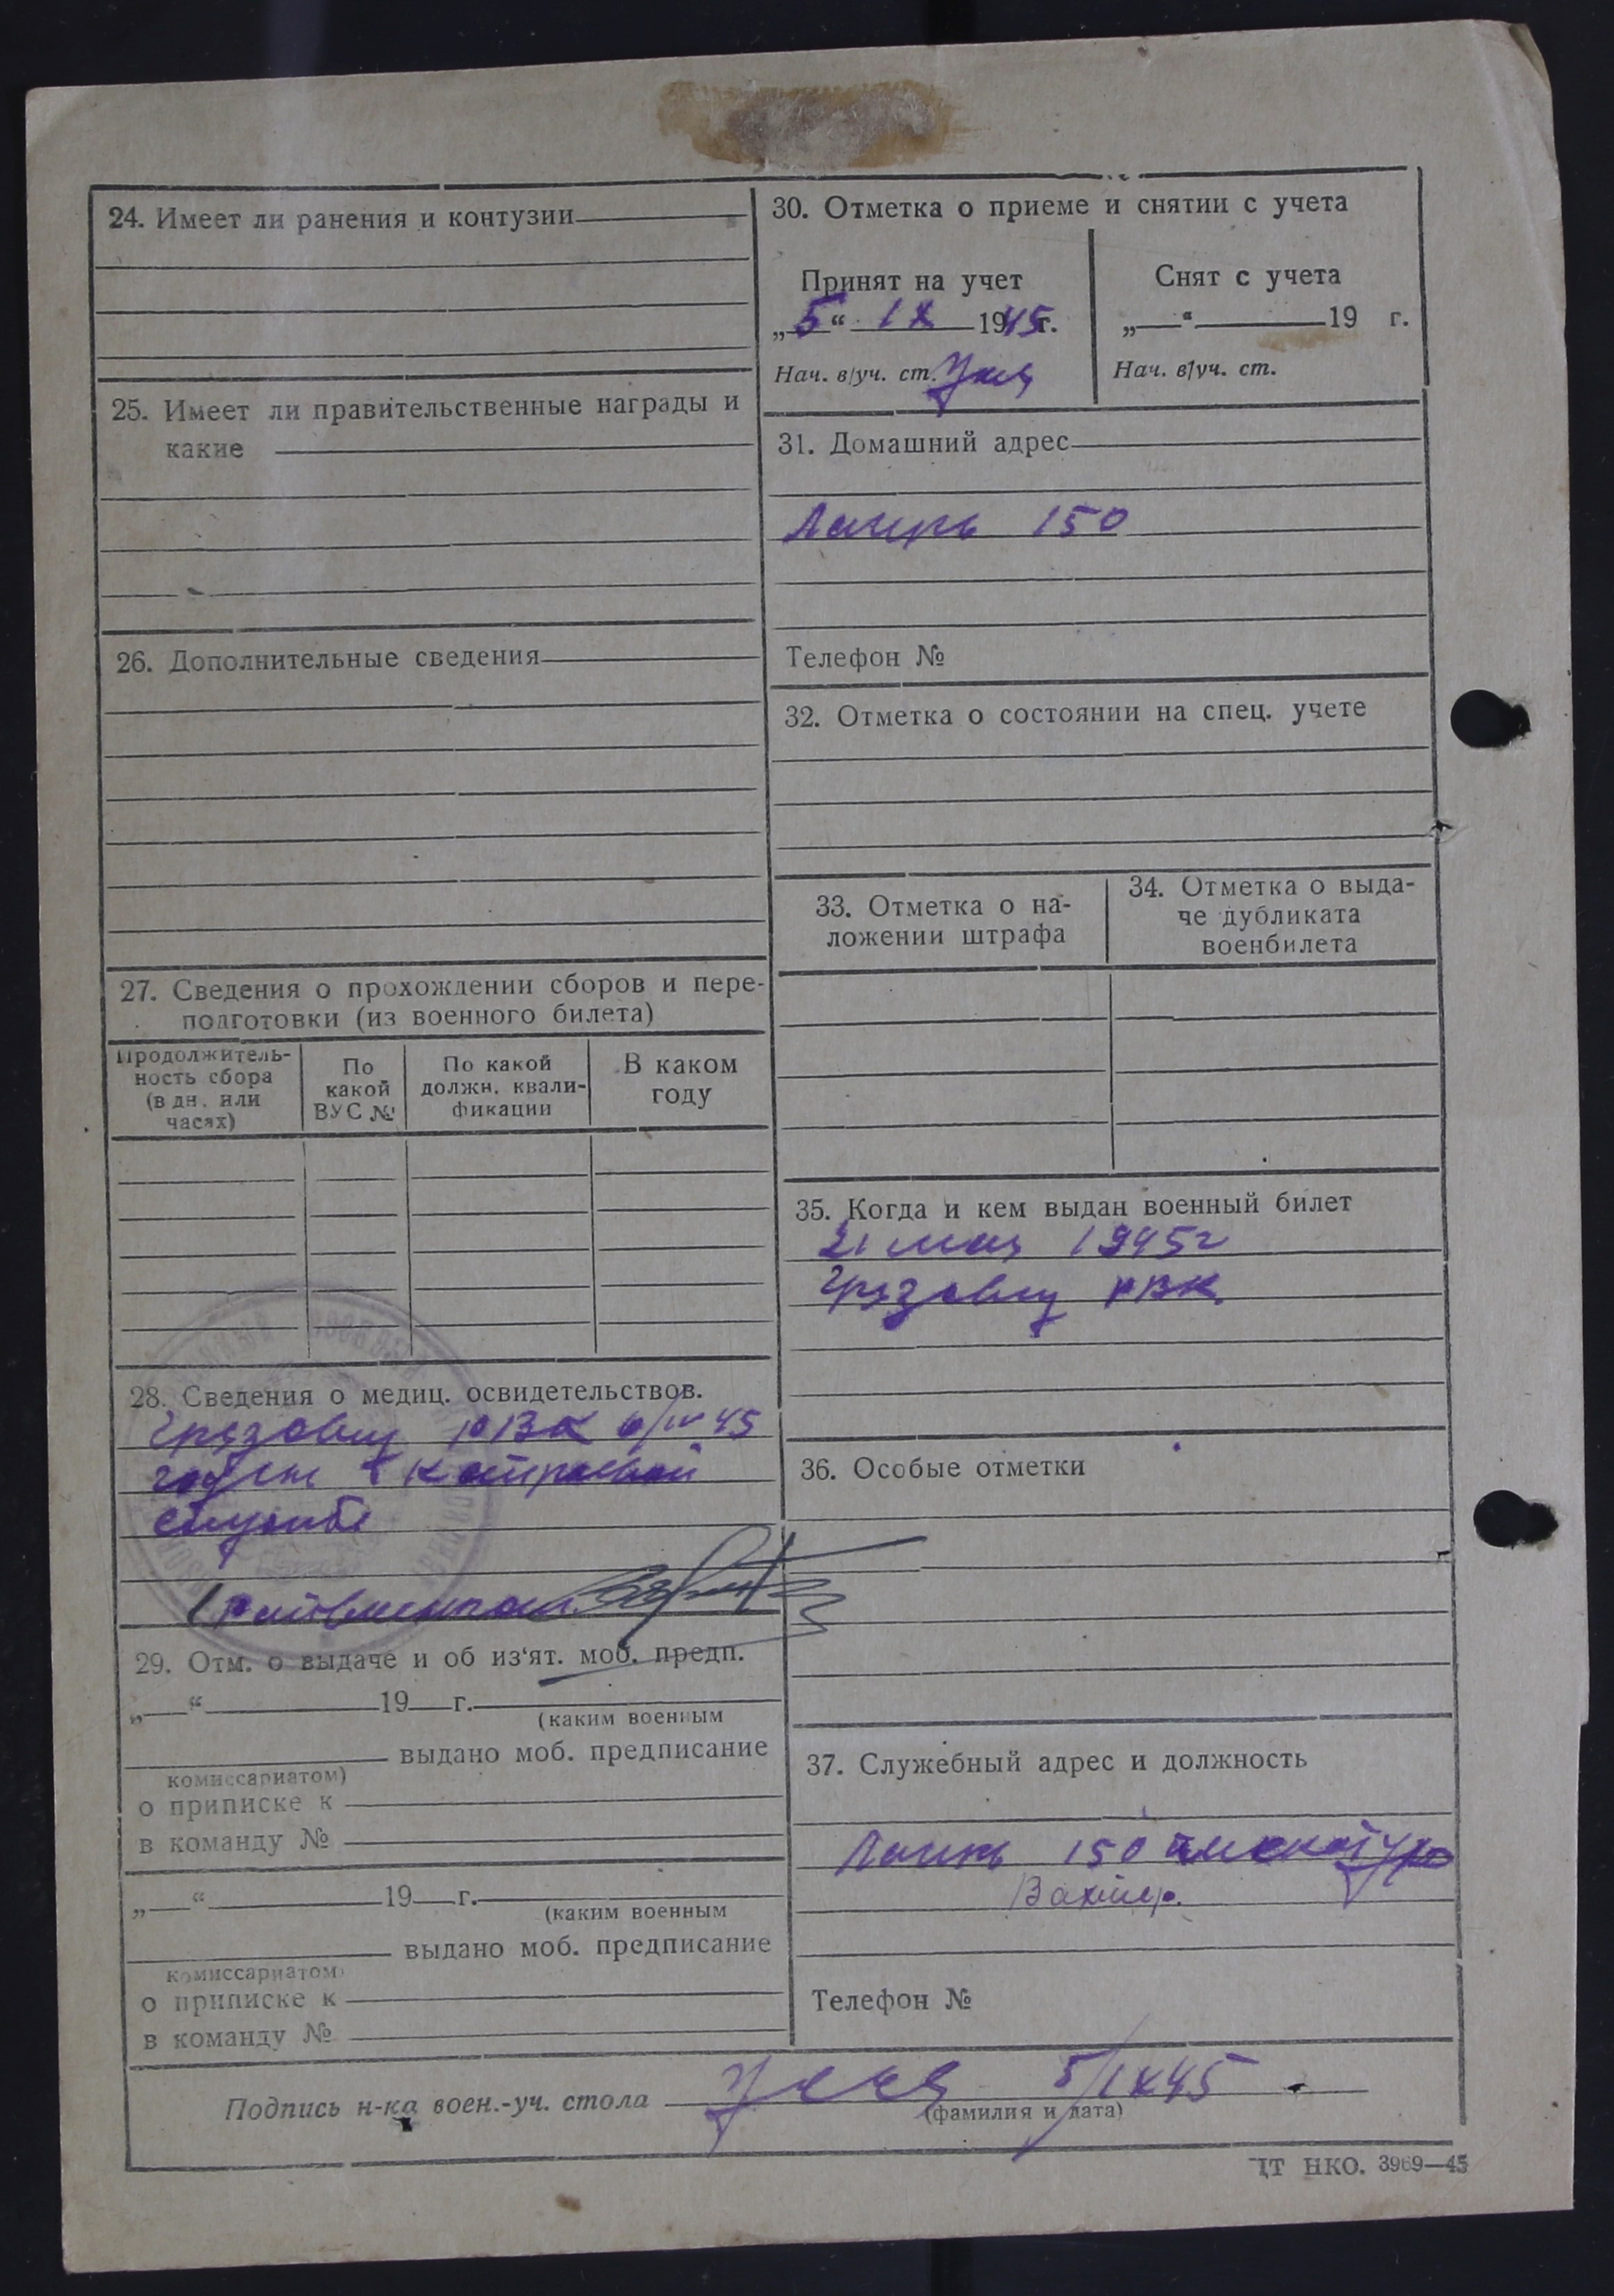 24. Имеет ли ранения и контузии
25. Имеет ли правительственные награды и
какие
26. Дополнительные сведения
27. Сведения о прохождении сборов и пере-
подготовки (из военного билета)
Продолжитель-
ность сбора
(в дн. или
часах)
По
какой
ВУС №
По какой
должн. квали-
фикации
В каком
году
28. Сведения о медиц. освидетельствов.
Грязовец РВК 6/IV 45
годен к нестроевой
службе
29. Отм. о выдаче и об из‘ят. моб. предп.
„ “ 19 г.
(каким военным
выдано моб. предписание
комиссариатом)
о приписке к
в команду №
„ “ 19 г.
(каким военным
выдано моб. предписание
комиссариатом)
о приписке к
в команду №
30. Отметка о приеме и снятии с учета
Принят на учет
„5“ IX 1945г.
Нач. в/уч. ст.
Снят с учета
„ “ 19 г.
Нач. в/уч. ст.
31. Домашний адрес
Лагерь 150
Телефон №
32. Отметка о состоянии на спец. учете
33. Отметка о на-
ложении штрафа
34. Отметка о выда-
че дубликата
военбилета
35. Когда и кем выдан военный билет
21 мая 1945г
Грязовец РВК
36. Особые отметки
37. Служебный адрес и должность
Лагерь 150
Вахтер.
Телефон №
Подпись н-ка воен.-уч. стола 5/IX 45
(фамилия и дата)
ЦТ НКО. 3969—45